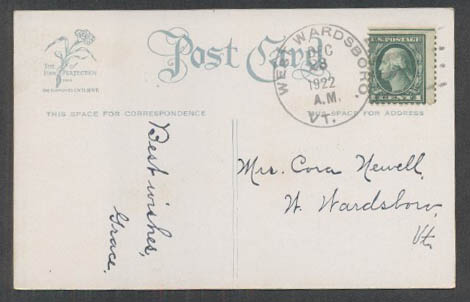 Post Card
THE
PINK PERFECTION
WEST WARDSBORO,
DEC
28
1922
A.M.
VT.
U.S. POSTAGE
CENTS
THIS SPACE FOR CORRESPONDENCE
THIS SPACE FOR ADDRESS
Best wishes,
Grace.
Mrs. Cora Newell,
W. Wardsboro,
Vt.